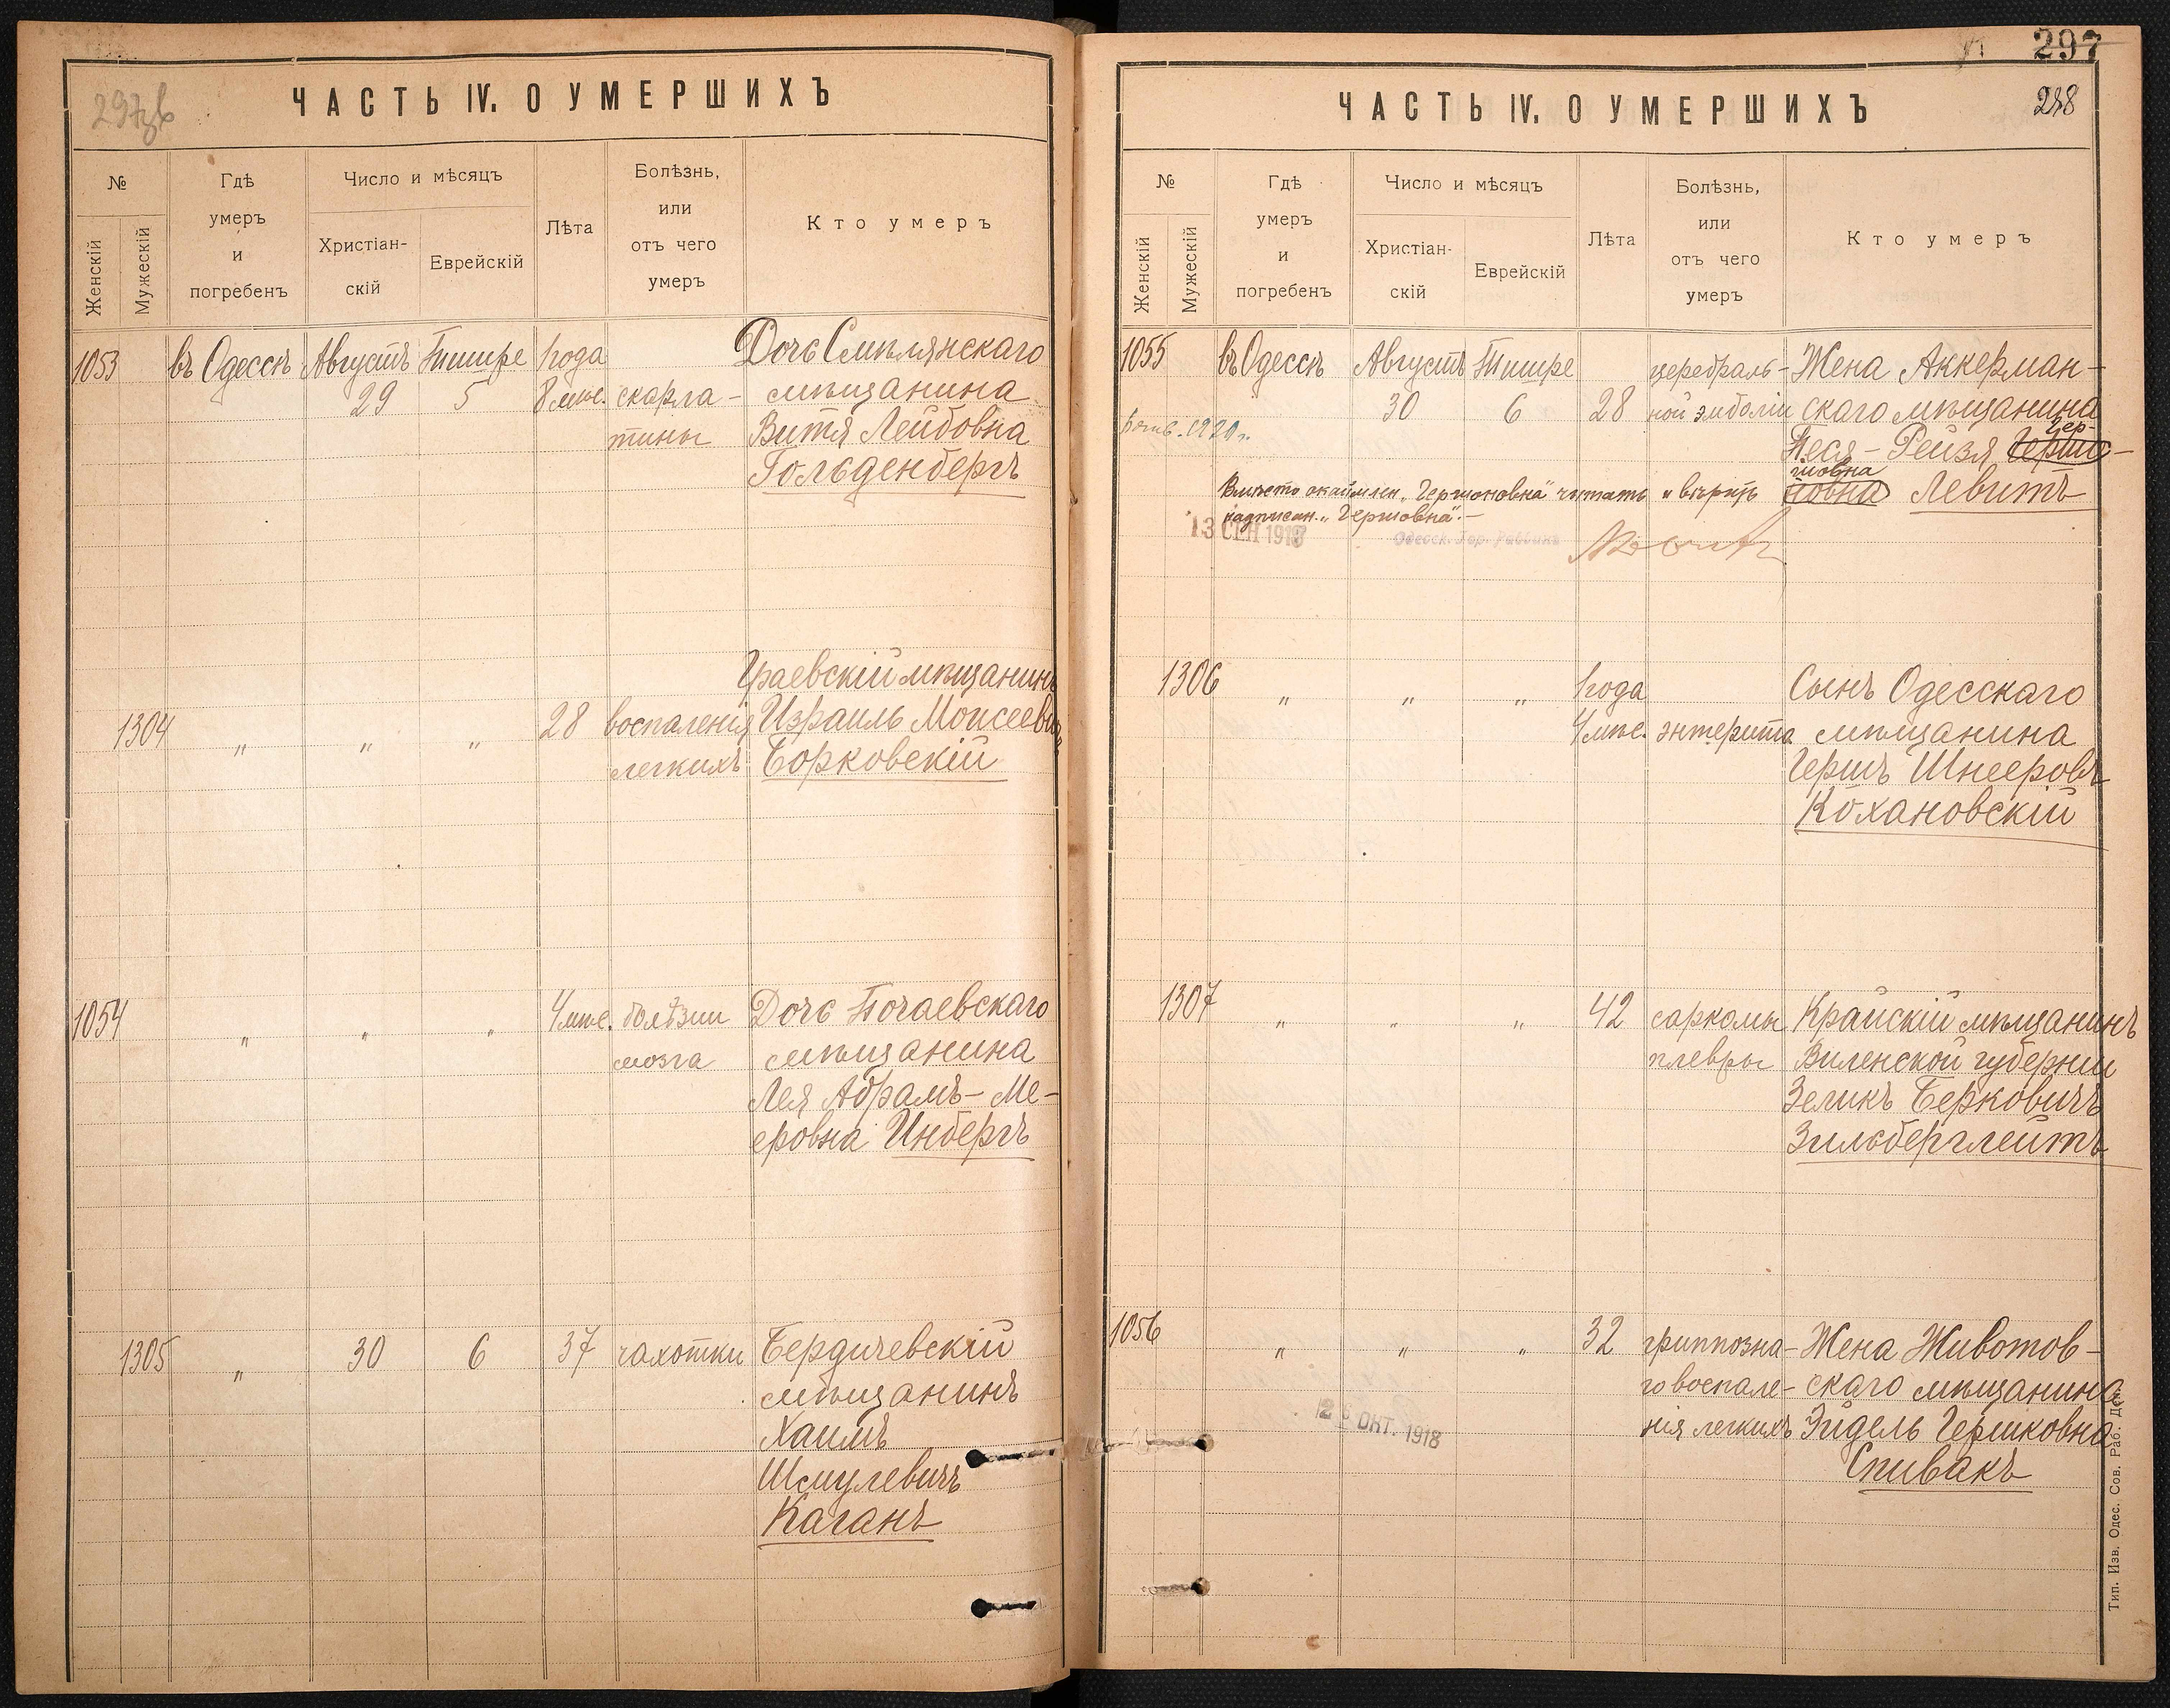 297
ЧАСТЬ IV. О УМЕРШИХЪ
№
Женскій
Мужескій
Гдѣ
умеръ
и
погребенъ
Число и мѣсяцъ
Христіан-
скій
Еврейскій
Лѣта
Болѣзнь,
или
отъ чего
умеръ
Кто умеръ
1053 въ Одессѣ Августъ Тишре 1 года Дочь Смѣлянскаго
29 5 8 мѣс. скарла- мѣщанина
тины Витя Лейбовна
Гольденбергъ
Граевскій мѣщанинъ
1304 „ „ „ 28 воспаленія Израиль Моисеевичъ
легкихъ Борковскій
1054 „ „ „ 4 мѣс. болѣзни Дочь Почаевскаго
мозга мѣщанина
Лея Абрамъ-Ме-
еровна Инбергъ
1305 „ 30 6 37 чахотки Бердичевскій
мѣщанинъ
Хаимъ
Шмулевичъ
Каганъ
297
ЧАСТЬ IV. О УМЕРШИХЪ
298
№
Женскій
Мужескій
Гдѣ
умеръ
и
погребенъ
Число и мѣсяцъ
Христіан-
скій
Еврейскій
Лѣта
Болѣзнь,
или
отъ чего
умеръ
Кто умеръ
1055 въ Одессѣ Августъ Тишре церебраль- Жена Аккерман-
30 6 28 ной эмболіи скаго мѣщанина
1920 г.
Гер-
Песя-Рейзя Гершо-
шовна
новна Левитъ
Вмѣсто окаймлен. „Гершоновна" читать и вѣрить
надписан. „Гершовна".-
13 СЕН 1918
Одесск. Гор. Раввинъ
1306 „ „ „ 1 года Сынъ Одесскаго
4 мѣс. энтерита мѣщанина
Гершъ Шнееровъ
Кохановскій
1307 „ „ „ 42 саркомы Крайскій мѣщанинъ
плевры Виленской губерніи
Зеликъ Берковичъ
Зильберглейтъ
1056 „ „ „ 32 гриппозна- Жена Животов-
го воспале- скаго мѣщанина
нія легкихъ Эйдель Гершковна
Спивакъ
ОКТ. 1918
Тип. Изв. Одес. Сов. Раб. Деп.